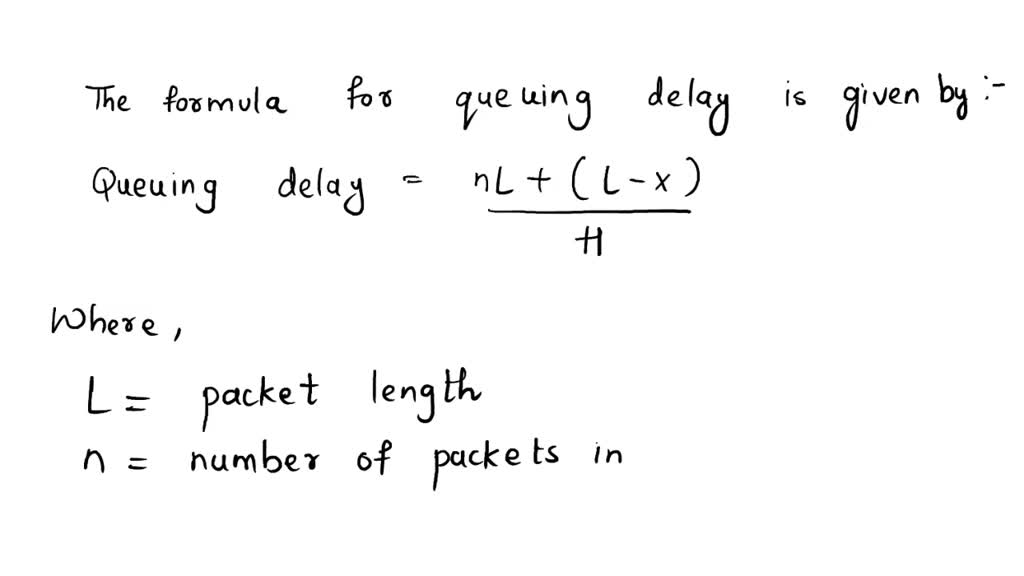 The formula for queuing delay is given by :-
Queuing delay = nL + (L-x)
H
Where,
L = packet length
n = number of packets in